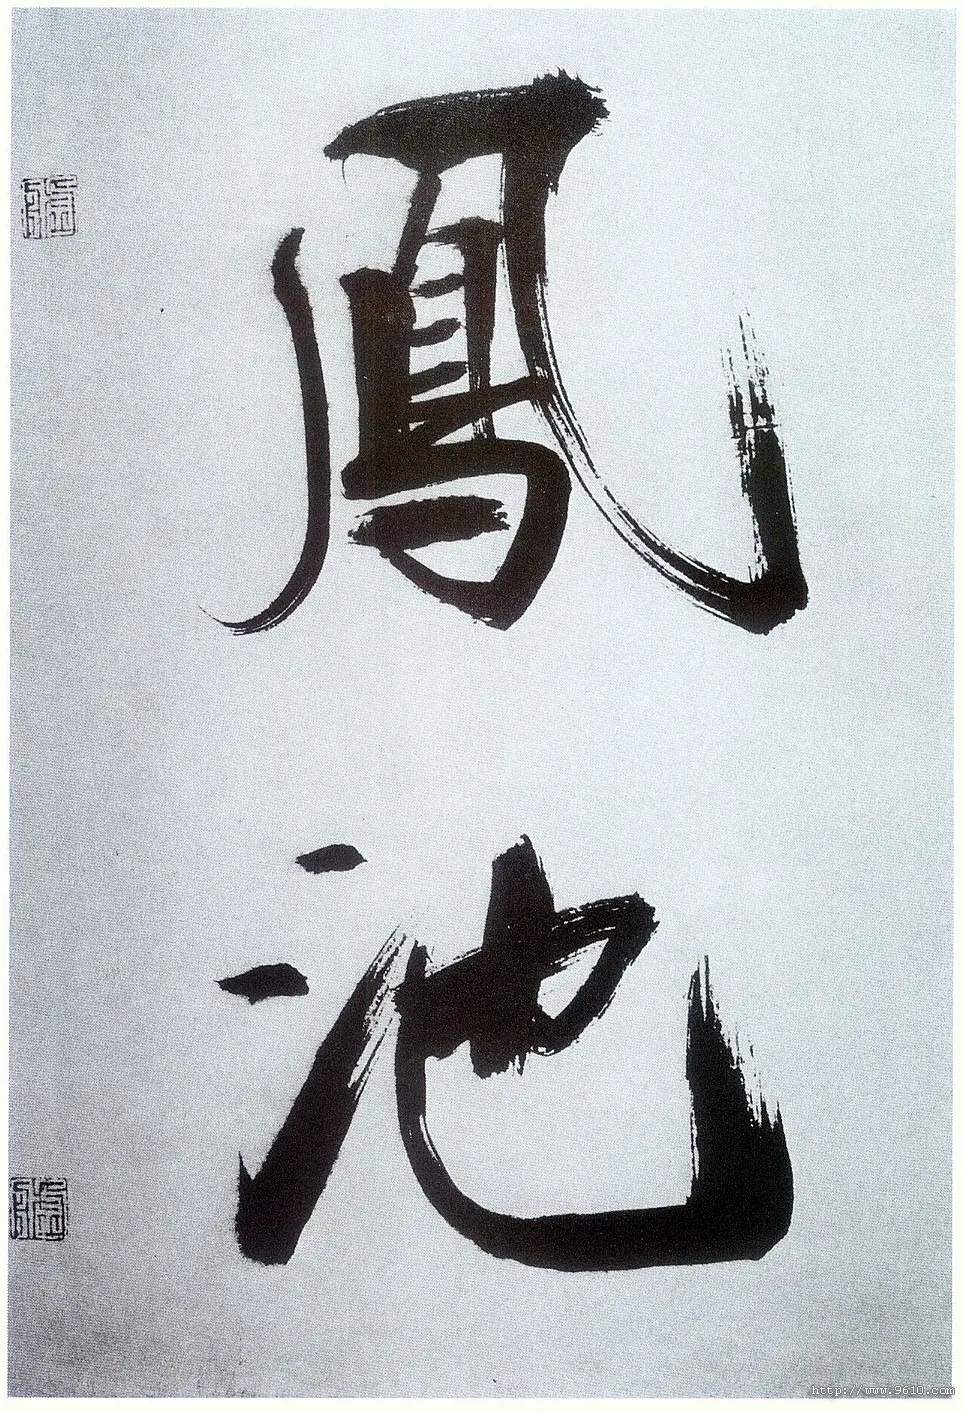 鳳
池
http://www.9610.com